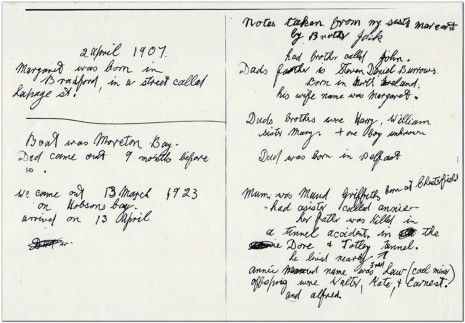 2 April 1907.
Margaret was born in
Bradford, in a street called
Lapage St.
Boat was Moreton Bay.
Dad came out 9 months before
us.
We came out 13 March 1923
on Hobsons bay.
arrived on 13 April
Notes taken from my sister Margaret
by Brother Jack
had brother called John.
Dads father is Steven David Burrows.
Born in North Ireland.
his wife name was Margaret.
Dads brothers were Harry, William
sister Mary. + one Boy unknown
Dad was born in Belfast
Mum was Maud Griffiths born at Chesterfield
had a sister called annie
her father was killed in
a tunnel accident, in the
Dore & Totley Tunnel.
he lived nearby
annie married name was Fred Law (coal miner)
offspring were Walter, Kate, & Earnest.
and alfred